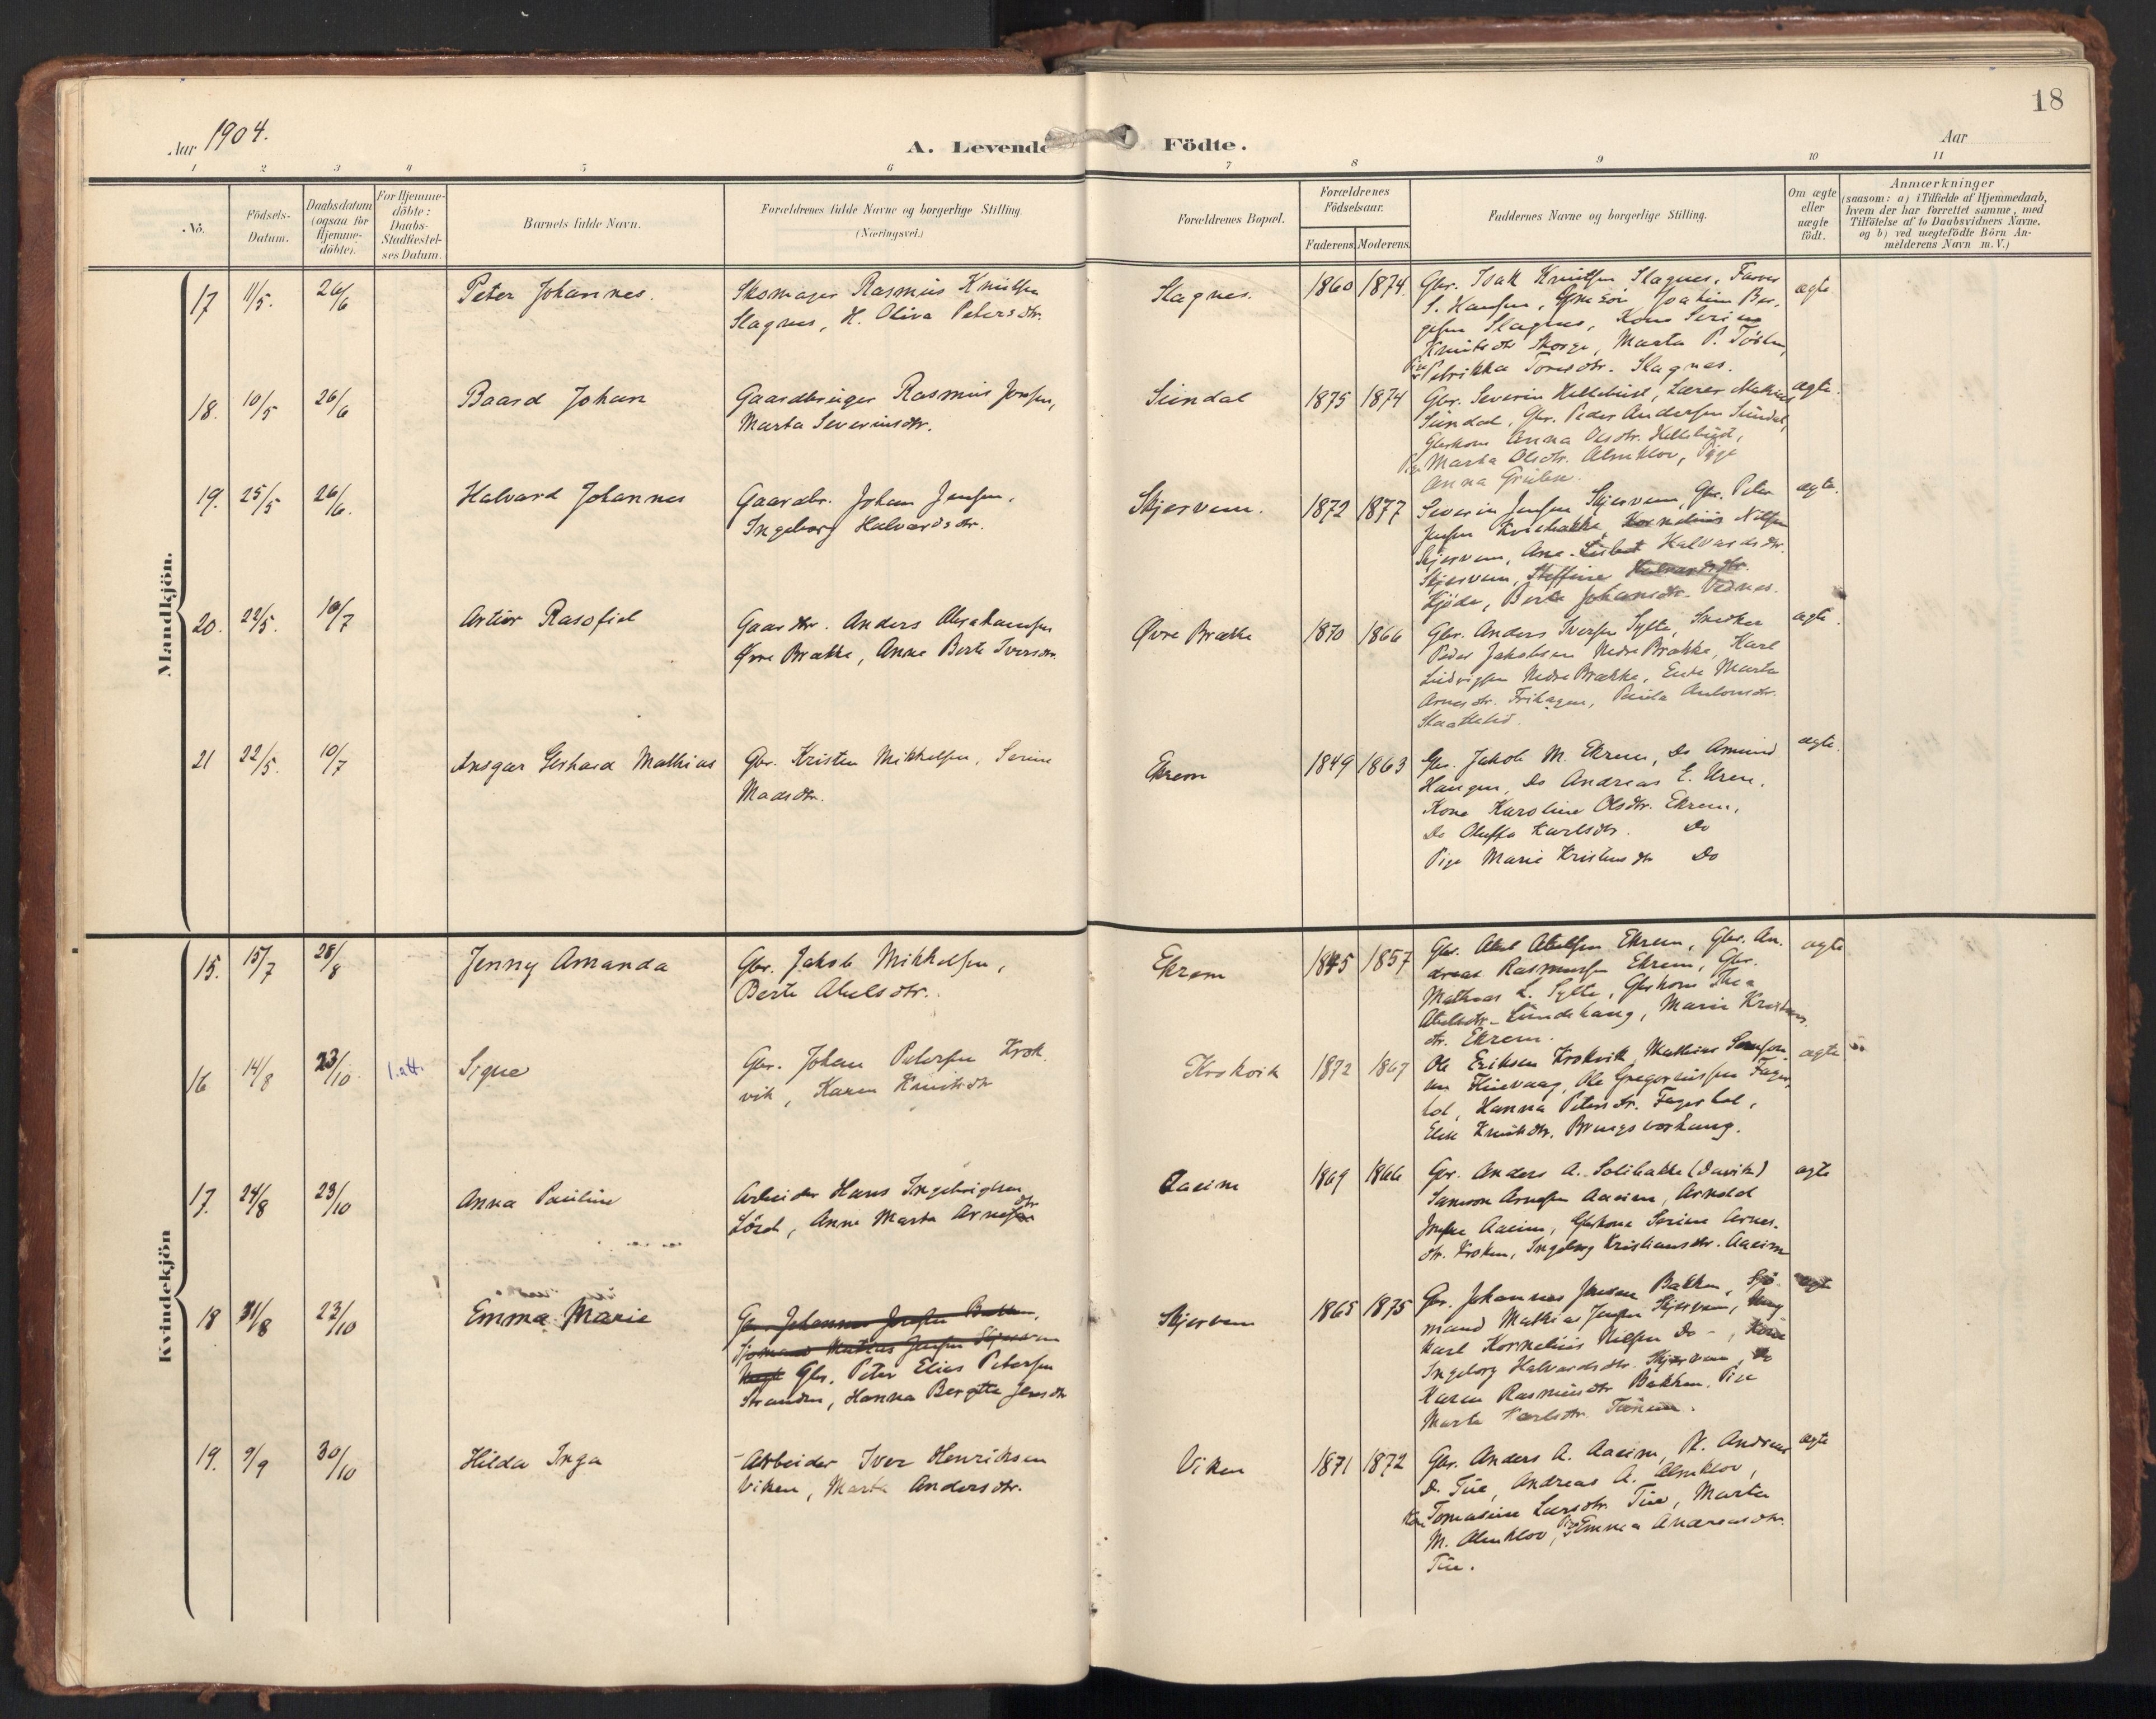 18
Aar 1904.
A. Levende Födte.
Aar
1 2 3 4 5 6 7 8 9 10 11
No.
Födsels-Datum.
Daabsdatum (ogsaa for Hjemmedöbte).
For Hjemmedöbte: Daabs-Stadfæstelses Datum.
Barnets fulde Navn.
Forældrenes fulde Navne og borgerlige Stilling.
(Næringsvei.)
Forældrenes Bopæl.
Forældrenes Födselsaar.
Faderens. Moderens.
Faddernes Navne og borgerlige Stilling.
Om ægte eller uægte födt.
Anmærkninger
(saasom: a) i Tilfælde af Hjemmedaab,
hvem der har forrettet samme, med
Tilföielse af to Daabsvidners Navne,
og b) ved uægtefödte Börn An-
melderens Navn m. V.)
Mandkjön.
17 11/5. 26/6 Peter Johannes.
Skomager Rasmus Knutsen
Slagnes, H. Oliva Petersdtr.
Slagnes. 1860 1874.
Gbr. Isak Knutsen Slagnes, Farver
S. Hansen, Joakim Ber-
gesen Slagnes, Kone Serine
Knutsdtr Skorge, Marta P.
Pige Petrikka Slagnes.
ægte
18. 10/5 26/6 Baard Johan
Gaardbruger Rasmus Jensen,
Marta Severinsdtr.
Sundal 1875 1874
Gbr. Severin Hellebust, Lærer Mathias
Sundal, Gbr. Peder Andersen Sundal,
Gbrkone Anna Olsdtr. Hellebust,
Pige Marta Olsdtr. Almklov, Pige
Anna
ægte.
19. 25/5 26/6. Halvard Johannes
Gaardbr. Johan Jensen,
Ingeborg Halvardsdtr.
Skjervem. 1872 1877
Severin Jensen Skjervem, Gbr. Peter
Jensen Kornelius Nilsen
Skjervem, Ane Lisbet Halvardsdtr.
Skjervem, Steffine
Kjöde, Berte Johansdtr. Vednes.
ægte.
20. 22/5. 10/7 Artur Rasofiel
Gaardbr. Anders Abrahamsen
Øvre Brække, Anne Berte Iversdtr.
Øvre Brække 1870 1866
Gbr. Anders Iversen Sylte, Snedker
Peder Jakobsen Nedre Brække, Karl
Ludvigsen Nedre Brække, Enke Marta
Arnesdtr. Frihagen, Paula Antonsdtr.
ægte.
21 22/5. 10/7 Ansgar Gerhard Mathias
Gbr. Kristen Mikkelsen, Serine
Madsdtr.
Ekrem 1849 1863
Gbr. Jakob M. Ekrem, Do Amund
Haugen, Do Andreas E. Urene,
Kone Karoline Olsdtr. Ekrem,
Do Oluffa Karlsdtr. Do
Pige Marie Kristensdtr Do
ægte.
Kvindekjön
15. 15/7 28/8 Jenny Amanda
Gbr. Jakob Mikkelsen,
Berte Abelsdtr.
Ekrem 1845 1857
Gbr. Abel Abelsen Ekrem, Gbr. An-
dreas Rasmussen Ekrem, Gbr.
Mathias L. Sylte, Gbrkone Thea
Abelsdtr. Lundehaug, Marie Kristens-
dtr. Ekrem.
ægte
16 14/8 23/10 1.att. Signe
Gbr. Johan Petersen Krok-
vik, Karen Knutsdtr
Krokvik 1872 1867
Ole Eriksen Krokvik, Mathias
Ole Gregoriussen Fager-
hol, Hanna Petersdtr. Fagerhol,
Elise Knutsdtr. Bringsvorhaug.
ægte
17. 24/8 23/10 Anna Pauline
Arbeider Hans Ingebrigtsen
Lörd, Anne Marta Arnesdtr
Aaeim 1869 1866
Gbr. Anders A. Solibakke (Davik)
Samson Arnesen Aaeim, Arnold
Jensen Aaeim, Gbrkone Serine Arnes-
dtr. Kroken, Ingeborg Kristiansdtr. Aaeim
ægte
18 31/8 23/10 Emma Marie
Gbr. Johannes Jensen Bakken,
Sjömand Mathias Jensen Skjervem
Gbr. Peter Elias Petersen
Stranden, Hanna Bergitte Jensdtr
Skjervem 1865 1875
Gbr. Johannes Jensen Bakken, Sjö-
mand Mathias Jensen Skjervem, Ung-
karl Kornelius Nilsen Do, Kone
Ingeborg Halvardsdtr. Skjervem, Do
Karen Rasmusdtr Bakken, Pige
Marta Karlsdtr.
ægte
19. 9/9 30/10 Hilda Inga
Arbeider Iver Henriksen
Viken, Marta Andersdtr.
Viken 1871 1872
Gbr. Anders A. Aaeim, Pk. Andreas
D. Tue, Andreas A. Almklov,
Kone Tomasine Larsdtr. Tue, Marta
M. Almklov, Pige Emma Andreasdtr.
Tue.
ægte